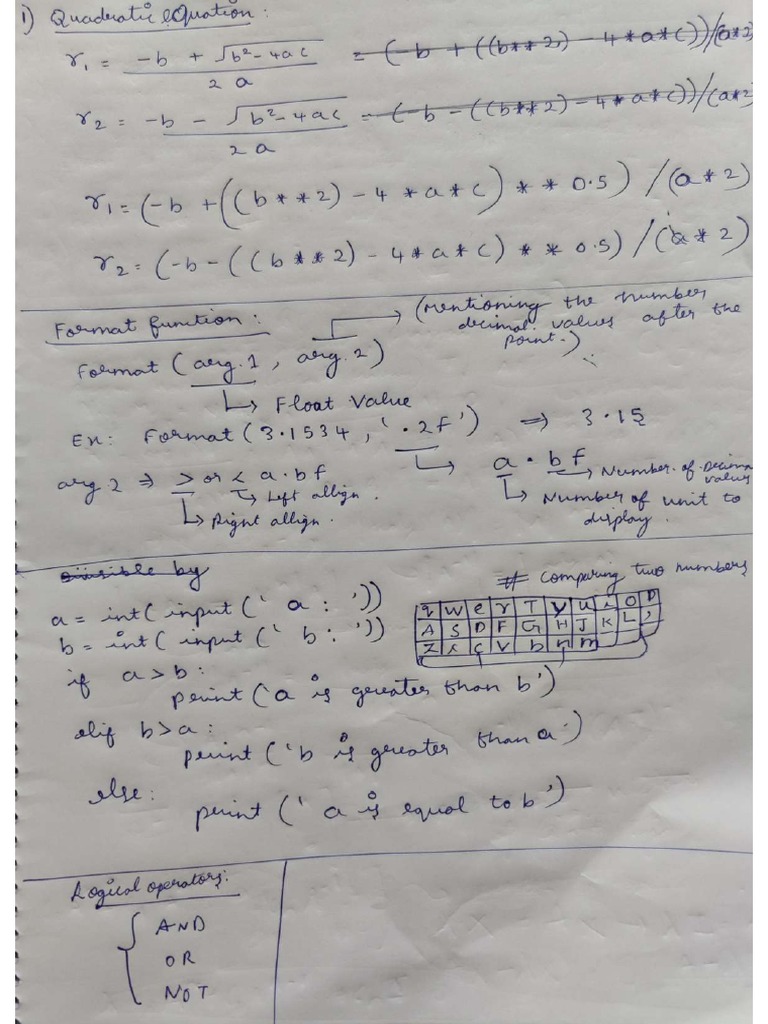 1) Quadratic equation:
r₁ = (-b + √(b²-4ac)) / 2a = (-b + ((b**2) - 4*a*c))/(a*2)
r₂ = (-b - √(b²-4ac)) / 2a = (-b - ((b**2) - 4*a*c))/(a*2)
r₁ = (-b + ((b**2) - 4*a*c) ** 0.5) / (a*2)
r₂ = (-b - ((b**2) - 4*a*c) ** 0.5) / (a*2)
Format function:
(Mentioning the number
decimal values after the
point.)
Format (arg.1, arg.2)
Float Value
Ex: Format (3.1534, '.2F') ⇒ 3.15
a.bf
Number of Decimal
values
Number of unit to
display.
arg 2 ⇒ > or < a.bf
Left allign.
Right allign.
by
# Comparing two numbers
a = int( input (' a : '))
b = int ( input (' b : '))
q w e r T y u i O P
A S D F G H J K L ,
Z x c v b n m
if a>b:
print ('a is greater than b')
elif b>a:
print ('b is greater than a')
else:
print (' a is equal to b')
Logical operators:
AND
OR
NOT